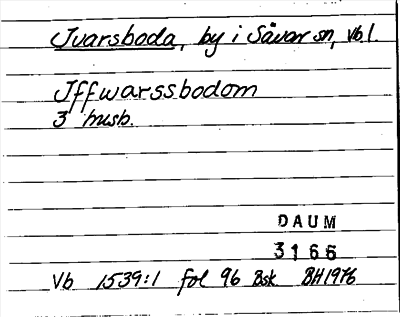 Ivarsboda, by i Sävar sn, Vb l.
Iffwarssbodom
3 husb.
DAUM
3166
Vb 1539:1 fol 96 Bsk BH1976